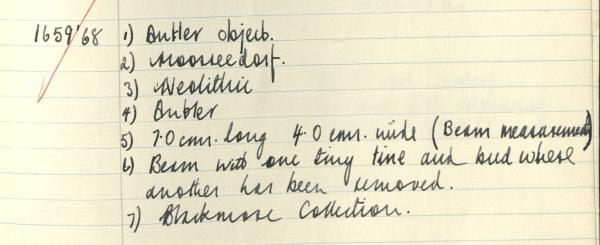 1659'68 1) Antler object.
2) Moosseedorf.
3) Neolithic
4) Antler
5) 7.0 cms. long 4.0 cms. wide (Beam measurement)
6) Beam with one tiny tine and bud where
another has been removed.
7) Blackmore Collection.